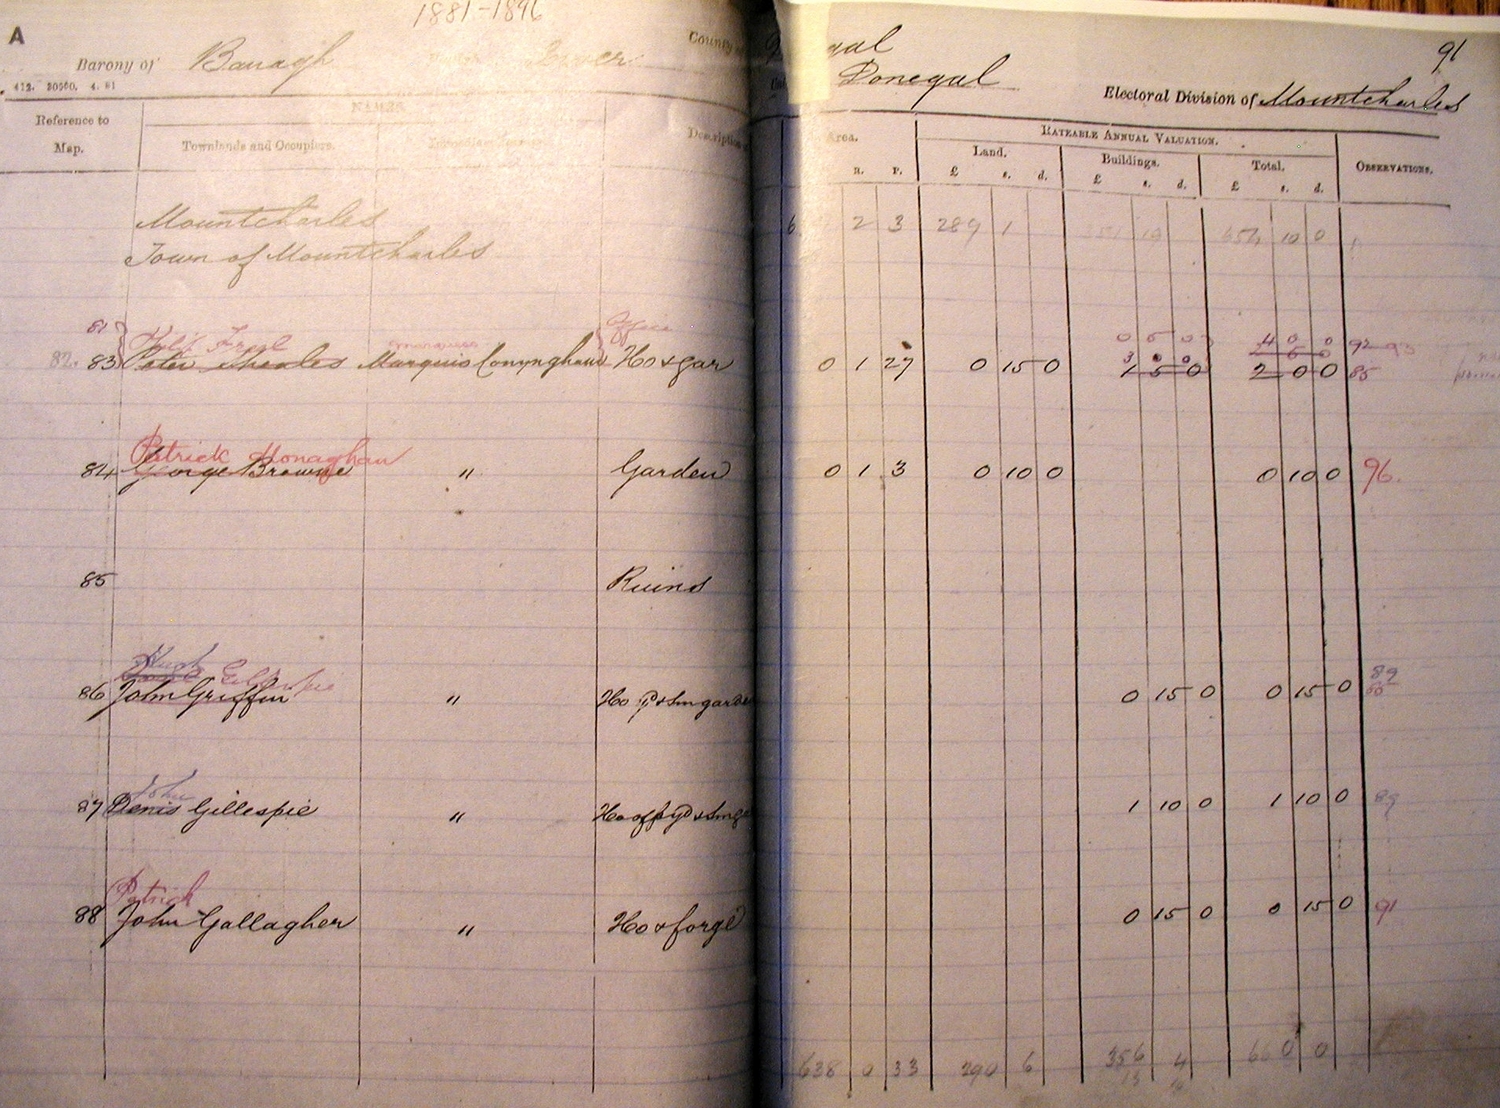 1881-1896
A
County of
gal
91
Barony of Banagh Inver
Donegal
Electoral Division of Mountcharles
412. 20500. 4. 81
NAMES.
Reference to Map.
Townlands and Occupiers.
Description
Area.
RATEABLE ANNUAL VALUATION.
Land. Buildings. Total.
OBSERVATIONS.
R. P. £ s. d. £ s. d. £ s. d.
Mountcharles 2 3 289 1 654 10 0
Town of Mountcharles
81 Felix Office 0 5 0 4 0 0 92
marquess
82. 83 Peter Marquis Conyngham Ho & gar 0 1 27 0 15 0 1 5 0 2 0 0 85
Patrick Monaghan
84 George Browne " Garden 0 1 3 0 10 0 0 10 0 96.
85 Ruins
Hugh Gillespie 89
86 John Griffin " Ho yd & sm garden 0 15 0 0 15 0
John
87 Denis Gillespie " Ho off yd & sm g 1 10 0 1 10 0 89
Patrick
88 John Gallagher " Ho & forge 0 15 0 0 15 0 91
638 0 33 290 6 356 4 0 0